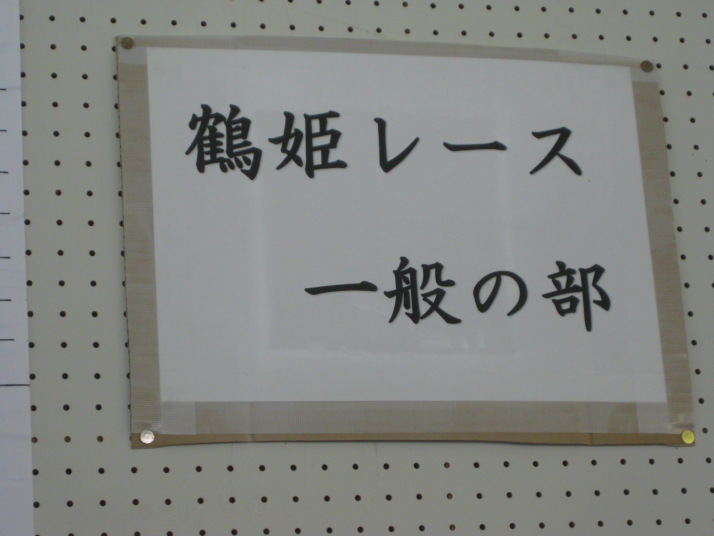 鶴姫レース
一般の部